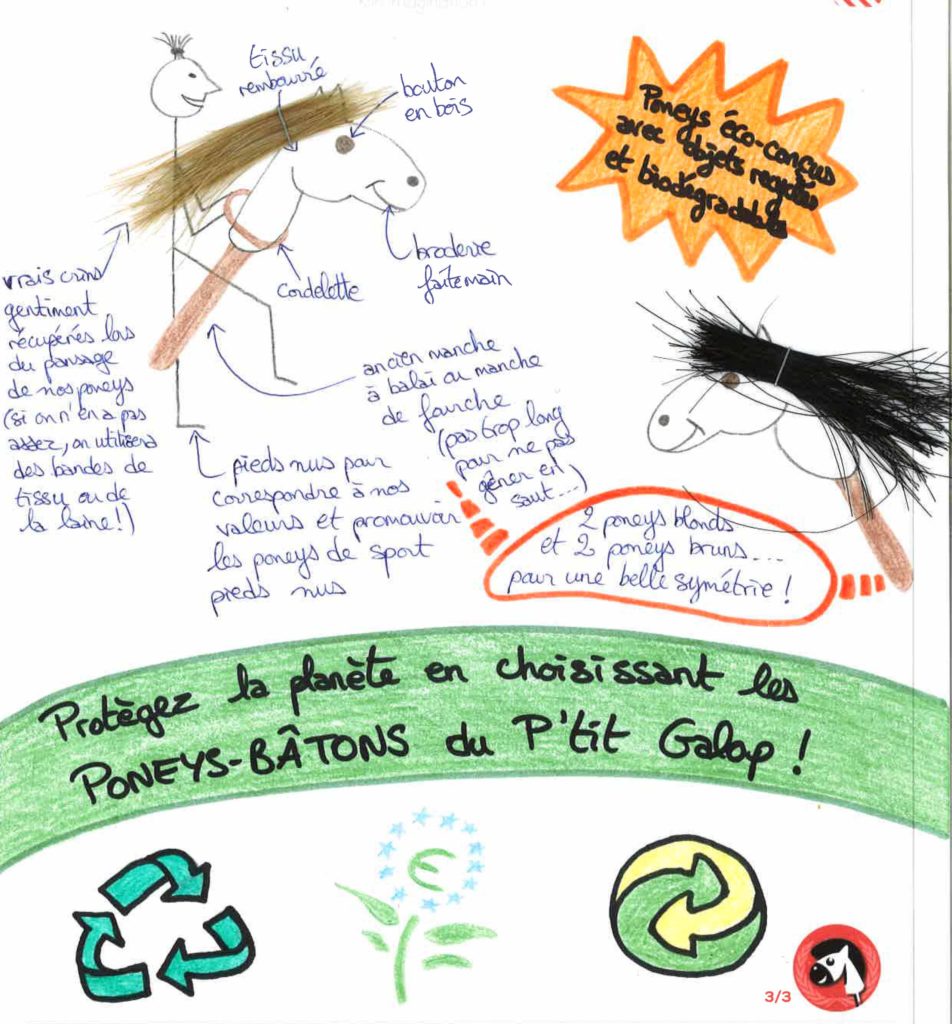 tissu
rembourré
bouton
en bois
Poneys éco-conçus
avec objets recyclés
et biodégradables
broderie
faitemain
cordelette
vrais crins
gentiment
récupérés lors
du pansage
de nos poneys
(si on n'en a pas
assez, on utilisera
des bandes de
tissu ou de
la laine!)
ancien manche
à balai ou manche
de fourche
(pas trop long
pour ne pas
gêner en
saut...)
pieds nus pour
correspondre à nos
valeurs et promouvoir
les poneys de sport
pieds nus
2 poneys blonds
et 2 poneys bruns....
pour une belle symétrie !
Protégez la planète en choisissant les
PONEYS-BÂTONS du P'tit Galop !
€
3/3